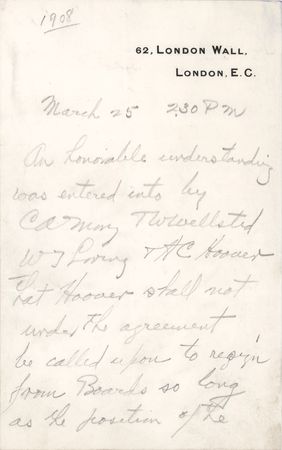 1908
62, LONDON WALL,
LONDON, E.C.
March 25 2.30 PM
An honorable understanding
was entered into by
C A Moreing T W Wellsted
W J Loring & H C Hoover
that Hoover shall not
under the agreement
be called upon to resign
from Boards so long
as the position of the